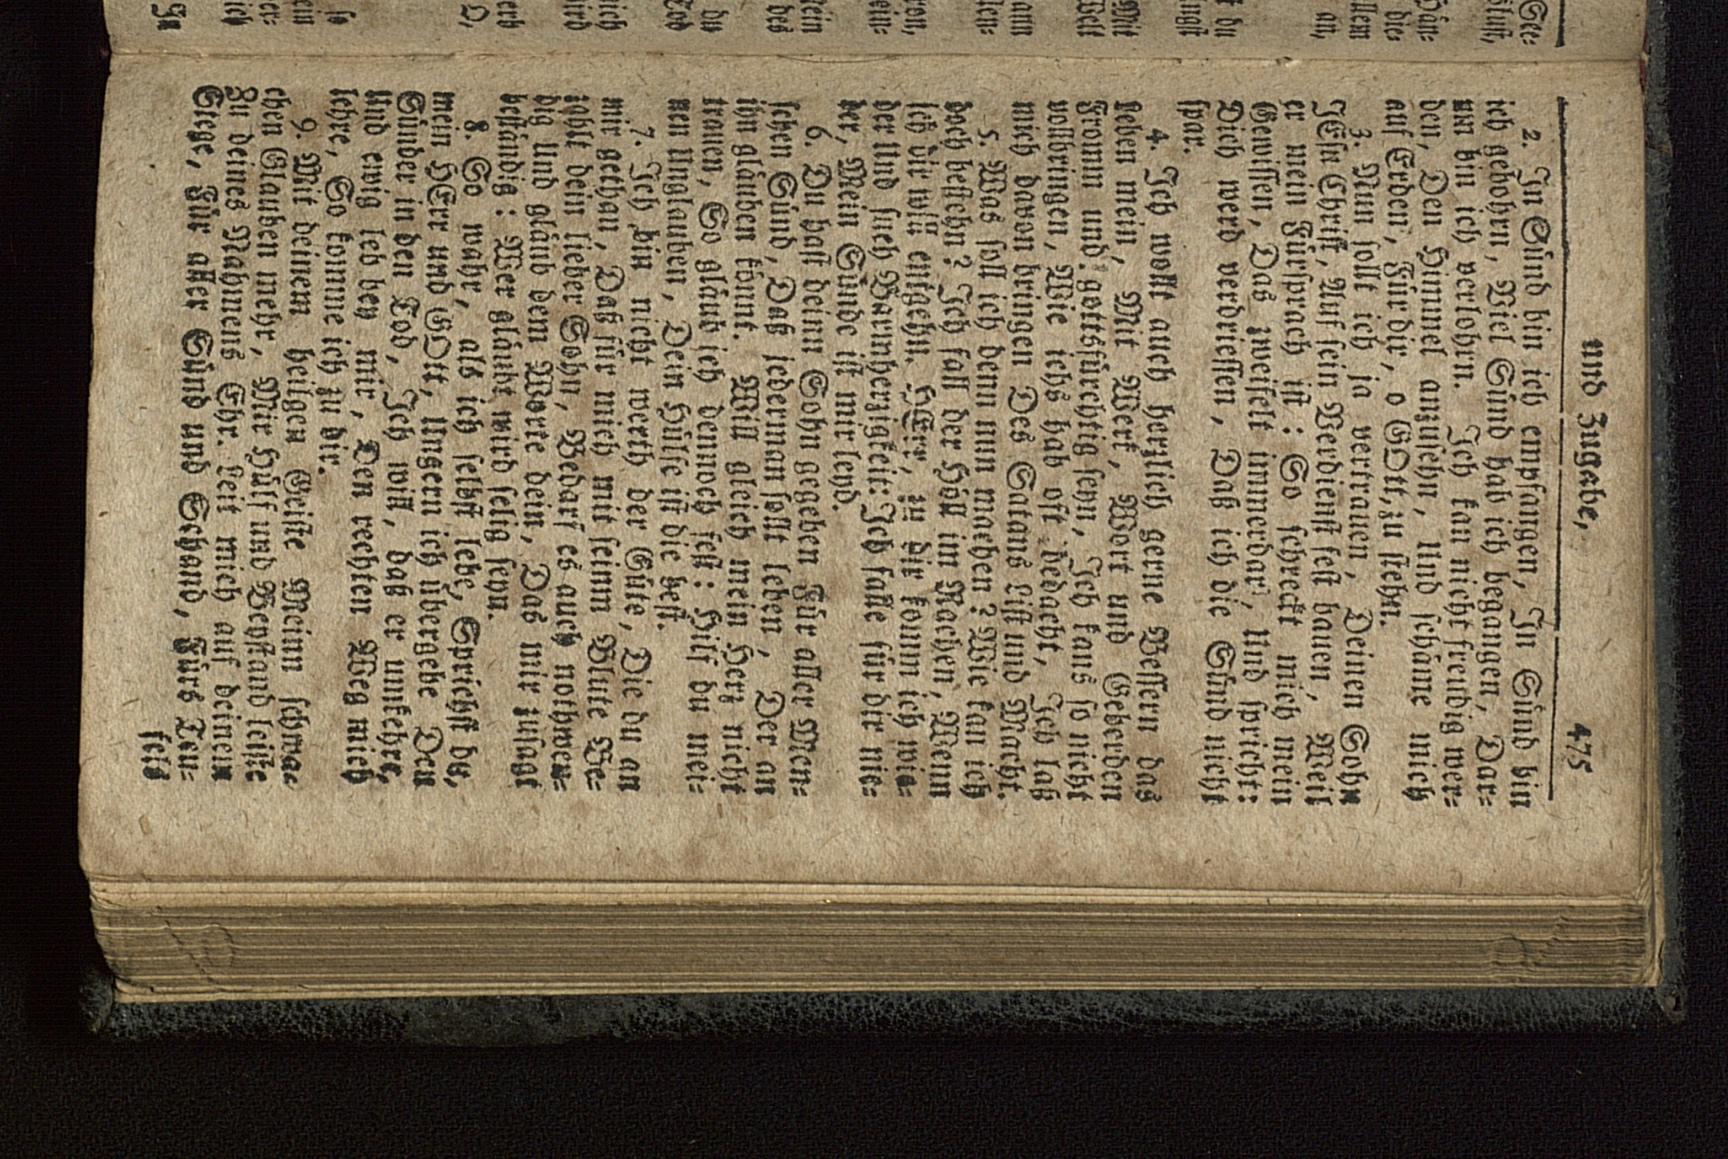 und Zugabe,
475
2. In Sünd bin ich empfangen, In Sünd bin
ich gebohrn, Viel Sünd hab ich begangen, Dar-
um bin ich verlohrn. Ich kan nicht freudig wer-
den, Den Himmel anzusehn, Und schäme mich
auf Erden, Für dir, o GOtt, zu stehn.
3. Nun sollt ich ja vertrauen, Deinen Sohn
JEsu Christ, Auf sein Verdienst fest bauen, Weil
er mein Fürsprach ist: So schreckt mich mein
Gewissen, Das zweifelt immerdar, Und spricht:
Dich werd verdriessen, Daß ich die Sünd nicht
spar.
4. Ich wollt auch herzlich gerne Bessern das
Leben mein, Mit Werk, Wort und Geberden
Fromm und gottsfürchtig seyn, Ich kans so nicht
vollbringen, Wie ichs hab oft bedacht, Ich laß
mich davon bringen Des Satans List und Macht.
5. Was soll ich denn nun machen? Wie kan ich
doch bestehn? Ich fall der Höll im Rachen, Wenn
ich dir will entgehn. HErr, zu dir komm ich wie-
der Und sieh Barmherzigkeit: Ich falle für dir nie-
der, Mein Sünde ist mir leid.
6. Du hast deinn Sohn gegeben Für aller Men-
schen Sünd, Daß jederman sollt leben, Der an
ihn gläuben könnt. Will gleich mein Herz nicht
trauen, So gläub ich dennoch fest: Hilf du mei-
nen Unglauben, Dein Hülfe ist die best.
7. Ich bin nicht werth der Güte, Die du an
mir gethan, Daß für mich mit seinm Blute Be-
zahlt dein lieber Sohn, Bedarf es auch nothwen-
dig Und gläub dem Worte dein, Das mir zusagt
beständig: Wer gläubt wird selig seyn.
8. So wahr, als ich selbst lebe, Sprichst du,
mein HErr und GOtt, Ungern ich übergebe Den
Sünder in den Tod, Ich will, daß er umkehre,
Und ewig leb bey mir, Den rechten Weg mich
lehre, So komme ich zu dir.
9. Mit deinem heilgen Geiste Meinn schwa-
chen Glauben mehr, Mir Hülf und Beystand leiste
Zu deines Nahmens Ehr. Leit mich auf deinem
Stege, Für aller Sünd und Schand, Fürs Teu-
fels